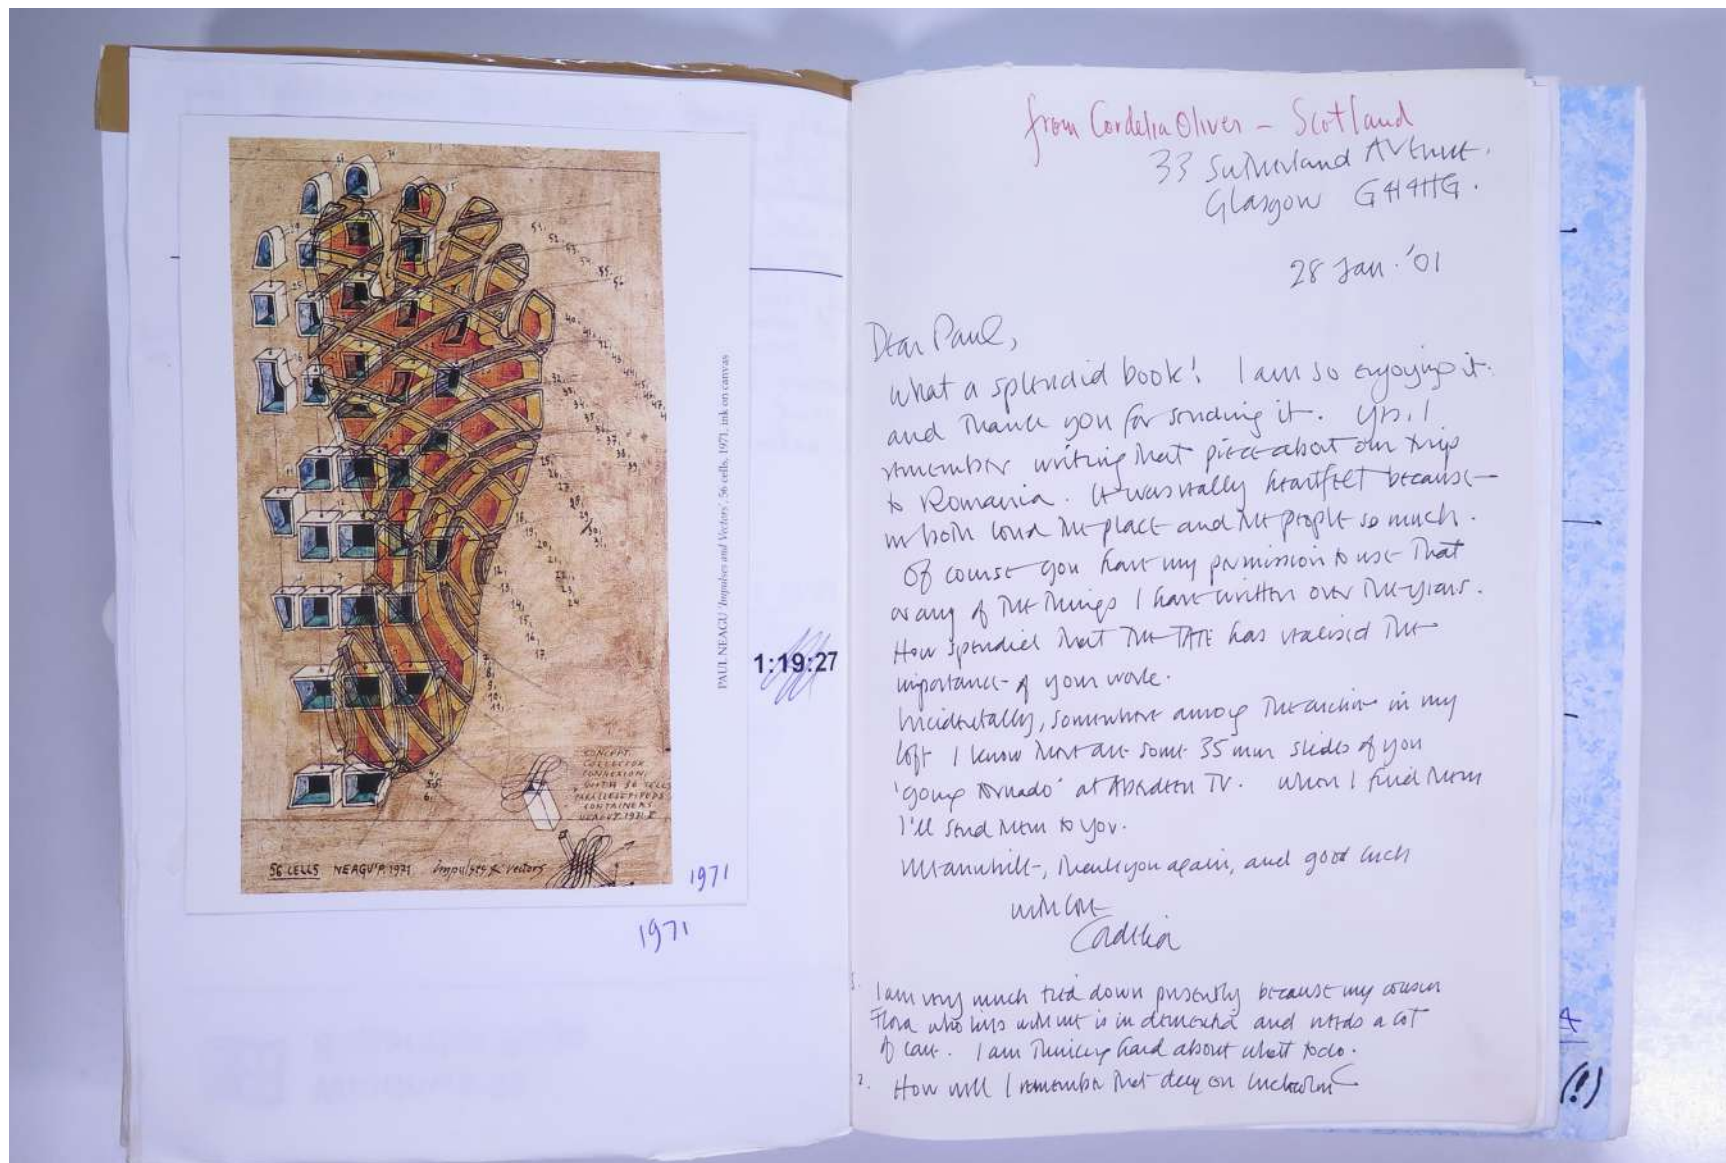 56 CELLS NEAGU P. 1971 Impulses & Vectors
CONCEPT
COLLECTOR
CONNEXION
WITH 56 CELLS
PARALLELEPIPEDS
CONTAINERS
NEAGU P. 1971
PAUL NEAGU 'Impulses and Vectors', 56 cells, 1971, ink on canvas
1971
1971
1:19:27
from Cordelia Oliver – Scotland
33 Sutherland Avenue.
Glasgow G41 4HG.
28 Jan. '01
Dear Paul,
What a splendid book! I am so enjoying it.
and thank you for sending it. Yes, I
remember writing that piece about our trip
to Romania. It was really heartfelt because
we both loved the place and the people so much.
Of course you have my permission to use that
or any of the things I have written over the years.
How splendid that the TATE has realised the
importance of your work.
Incidentally, somewhere among the archive in my
loft I know there are some 35 mm slides of you
'going tornado' at Aberdeen TV. When I find them
I'll send them to you.
Meanwhile, thank you again, and good luck
with love
Cordelia
I am very much tied down presently because my cousin
Flora who lives with me is in dementia and needs a lot
of care. I am thinking hard about what to do.
2. How well I remember that day on Inchcolm
(!)